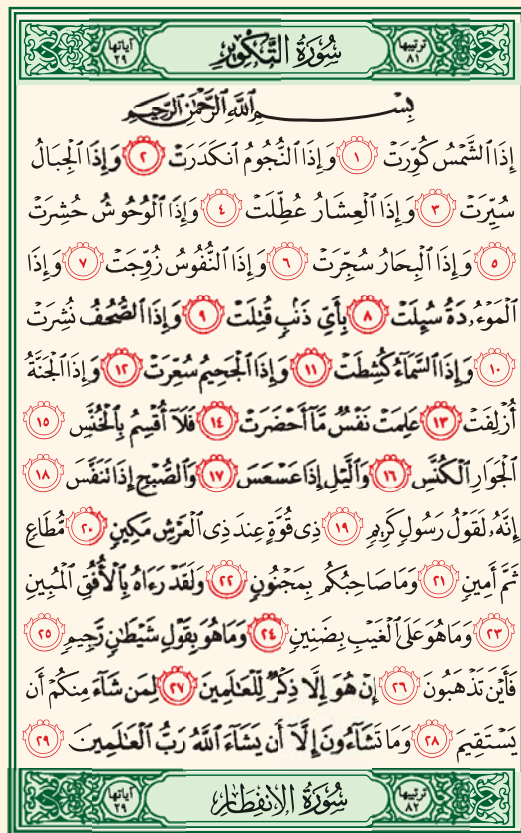 ترتيبها ٨١ سُورَةُ التَّكْوِيرِ آياتها ٢٩
بِسْمِ اللَّهِ الرَّحْمَٰنِ الرَّحِيمِ
إِذَا الشَّمْسُ كُوِّرَتْ ١ وَإِذَا النُّجُومُ انكَدَرَتْ ٢ وَإِذَا الْجِبَالُ
سُيِّرَتْ ٣ وَإِذَا الْعِشَارُ عُطِّلَتْ ٤ وَإِذَا الْوُحُوشُ حُشِرَتْ
٥ وَإِذَا الْبِحَارُ سُجِّرَتْ ٦ وَإِذَا النُّفُوسُ زُوِّجَتْ ٧ وَإِذَا
الْمَوْءُۥدَةُ سُئِلَتْ ٨ بِأَيِّ ذَنۢبٍ قُتِلَتْ ٩ وَإِذَا الصُّحُفُ نُشِرَتْ
١٠ وَإِذَا السَّمَآءُ كُشِطَتْ ١١ وَإِذَا الْجَحِيمُ سُعِّرَتْ ١٢ وَإِذَا الْجَنَّةُ
أُزْلِفَتْ ١٣ عَلِمَتْ نَفْسٌ مَّآ أَحْضَرَتْ ١٤ فَلَآ أُقْسِمُ بِالْخُنَّسِ ١٥
الْجَوَارِ الْكُنَّسِ ١٦ وَالَّيْلِ إِذَا عَسْعَسَ ١٧ وَالصُّبْحِ إِذَا تَنَفَّسَ ١٨
إِنَّهُۥ لَقَوْلُ رَسُولٍ كَرِيمٍ ١٩ ذِى قُوَّةٍ عِندَ ذِى الْعَرْشِ مَكِينٍ ٢٠ مُّطَاعٍ
ثَمَّ أَمِينٍ ٢١ وَمَا صَاحِبُكُم بِمَجْنُونٍ ٢٢ وَلَقَدْ رَءَاهُ بِالْأُفُقِ الْمُبِينِ
٢٣ وَمَا هُوَ عَلَى الْغَيْبِ بِضَنِينٍ ٢٤ وَمَا هُوَ بِقَوْلِ شَيْطَٰنٍ رَّجِيمٍ ٢٥
فَأَيْنَ تَذْهَبُونَ ٢٦ إِنْ هُوَ إِلَّا ذِكْرٌ لِّلْعَٰلَمِينَ ٢٧ لِمَن شَآءَ مِنكُمْ أَن
يَسْتَقِيمَ ٢٨ وَمَا تَشَآءُونَ إِلَّآ أَن يَشَآءَ اللَّهُ رَبُّ الْعَٰلَمِينَ ٢٩
ترتيبها ٨٢ سُورَةُ الِانفِطَارِ آياتها ٢٩